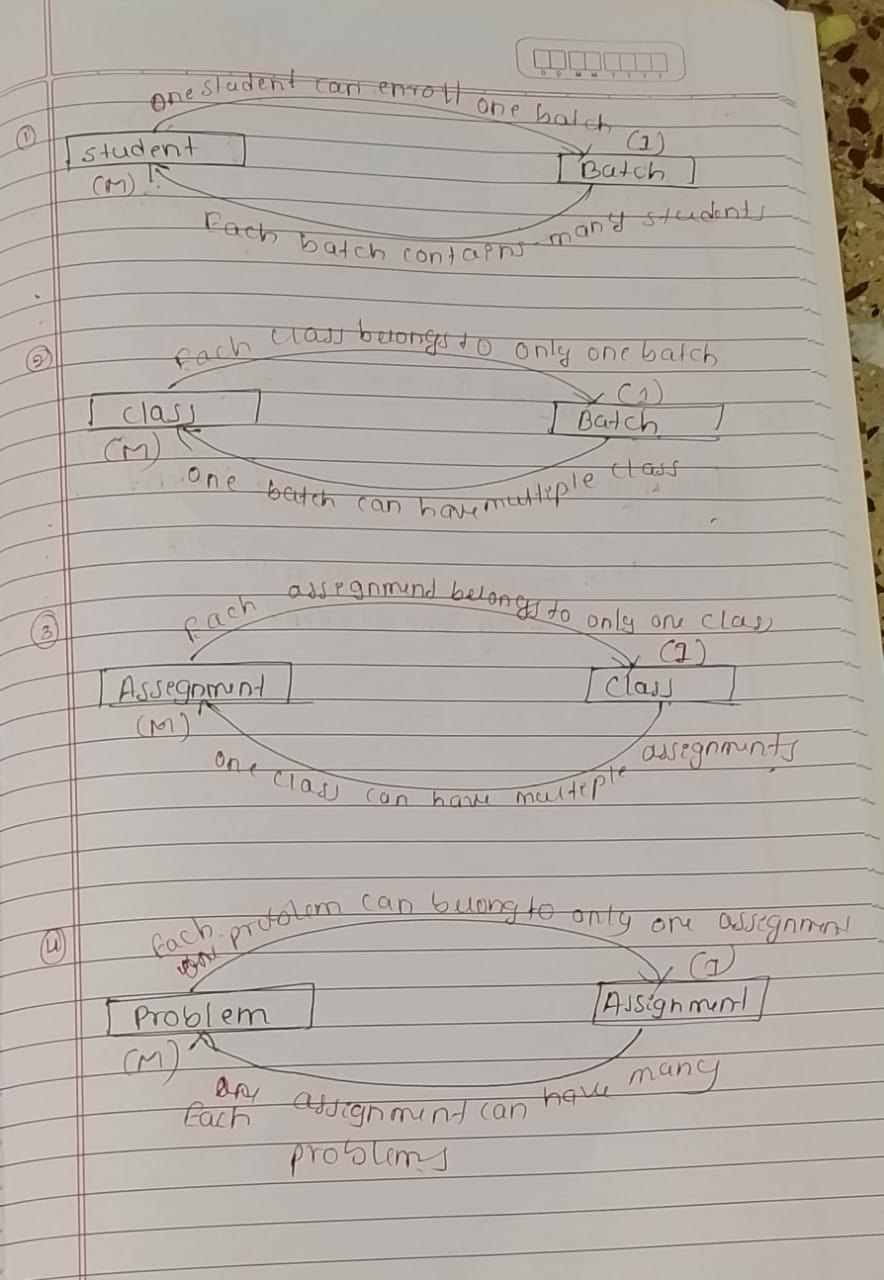 D D M M Y Y Y Y
One student can enroll one batch
①
student
(1)
Batch
(M)
Each batch contains many students
②
Each class belongs to only one batch
class
(1)
Batch
(M)
One batch can have multiple class
③
Each assegnmend belongs to only one class
Assegnment
(1)
Class
(M)
One class can have multeple assegnments
④
Each problem can belong to only one assignment
Problem
(1)
Assignment
(M)
Each assignment can have many
problems